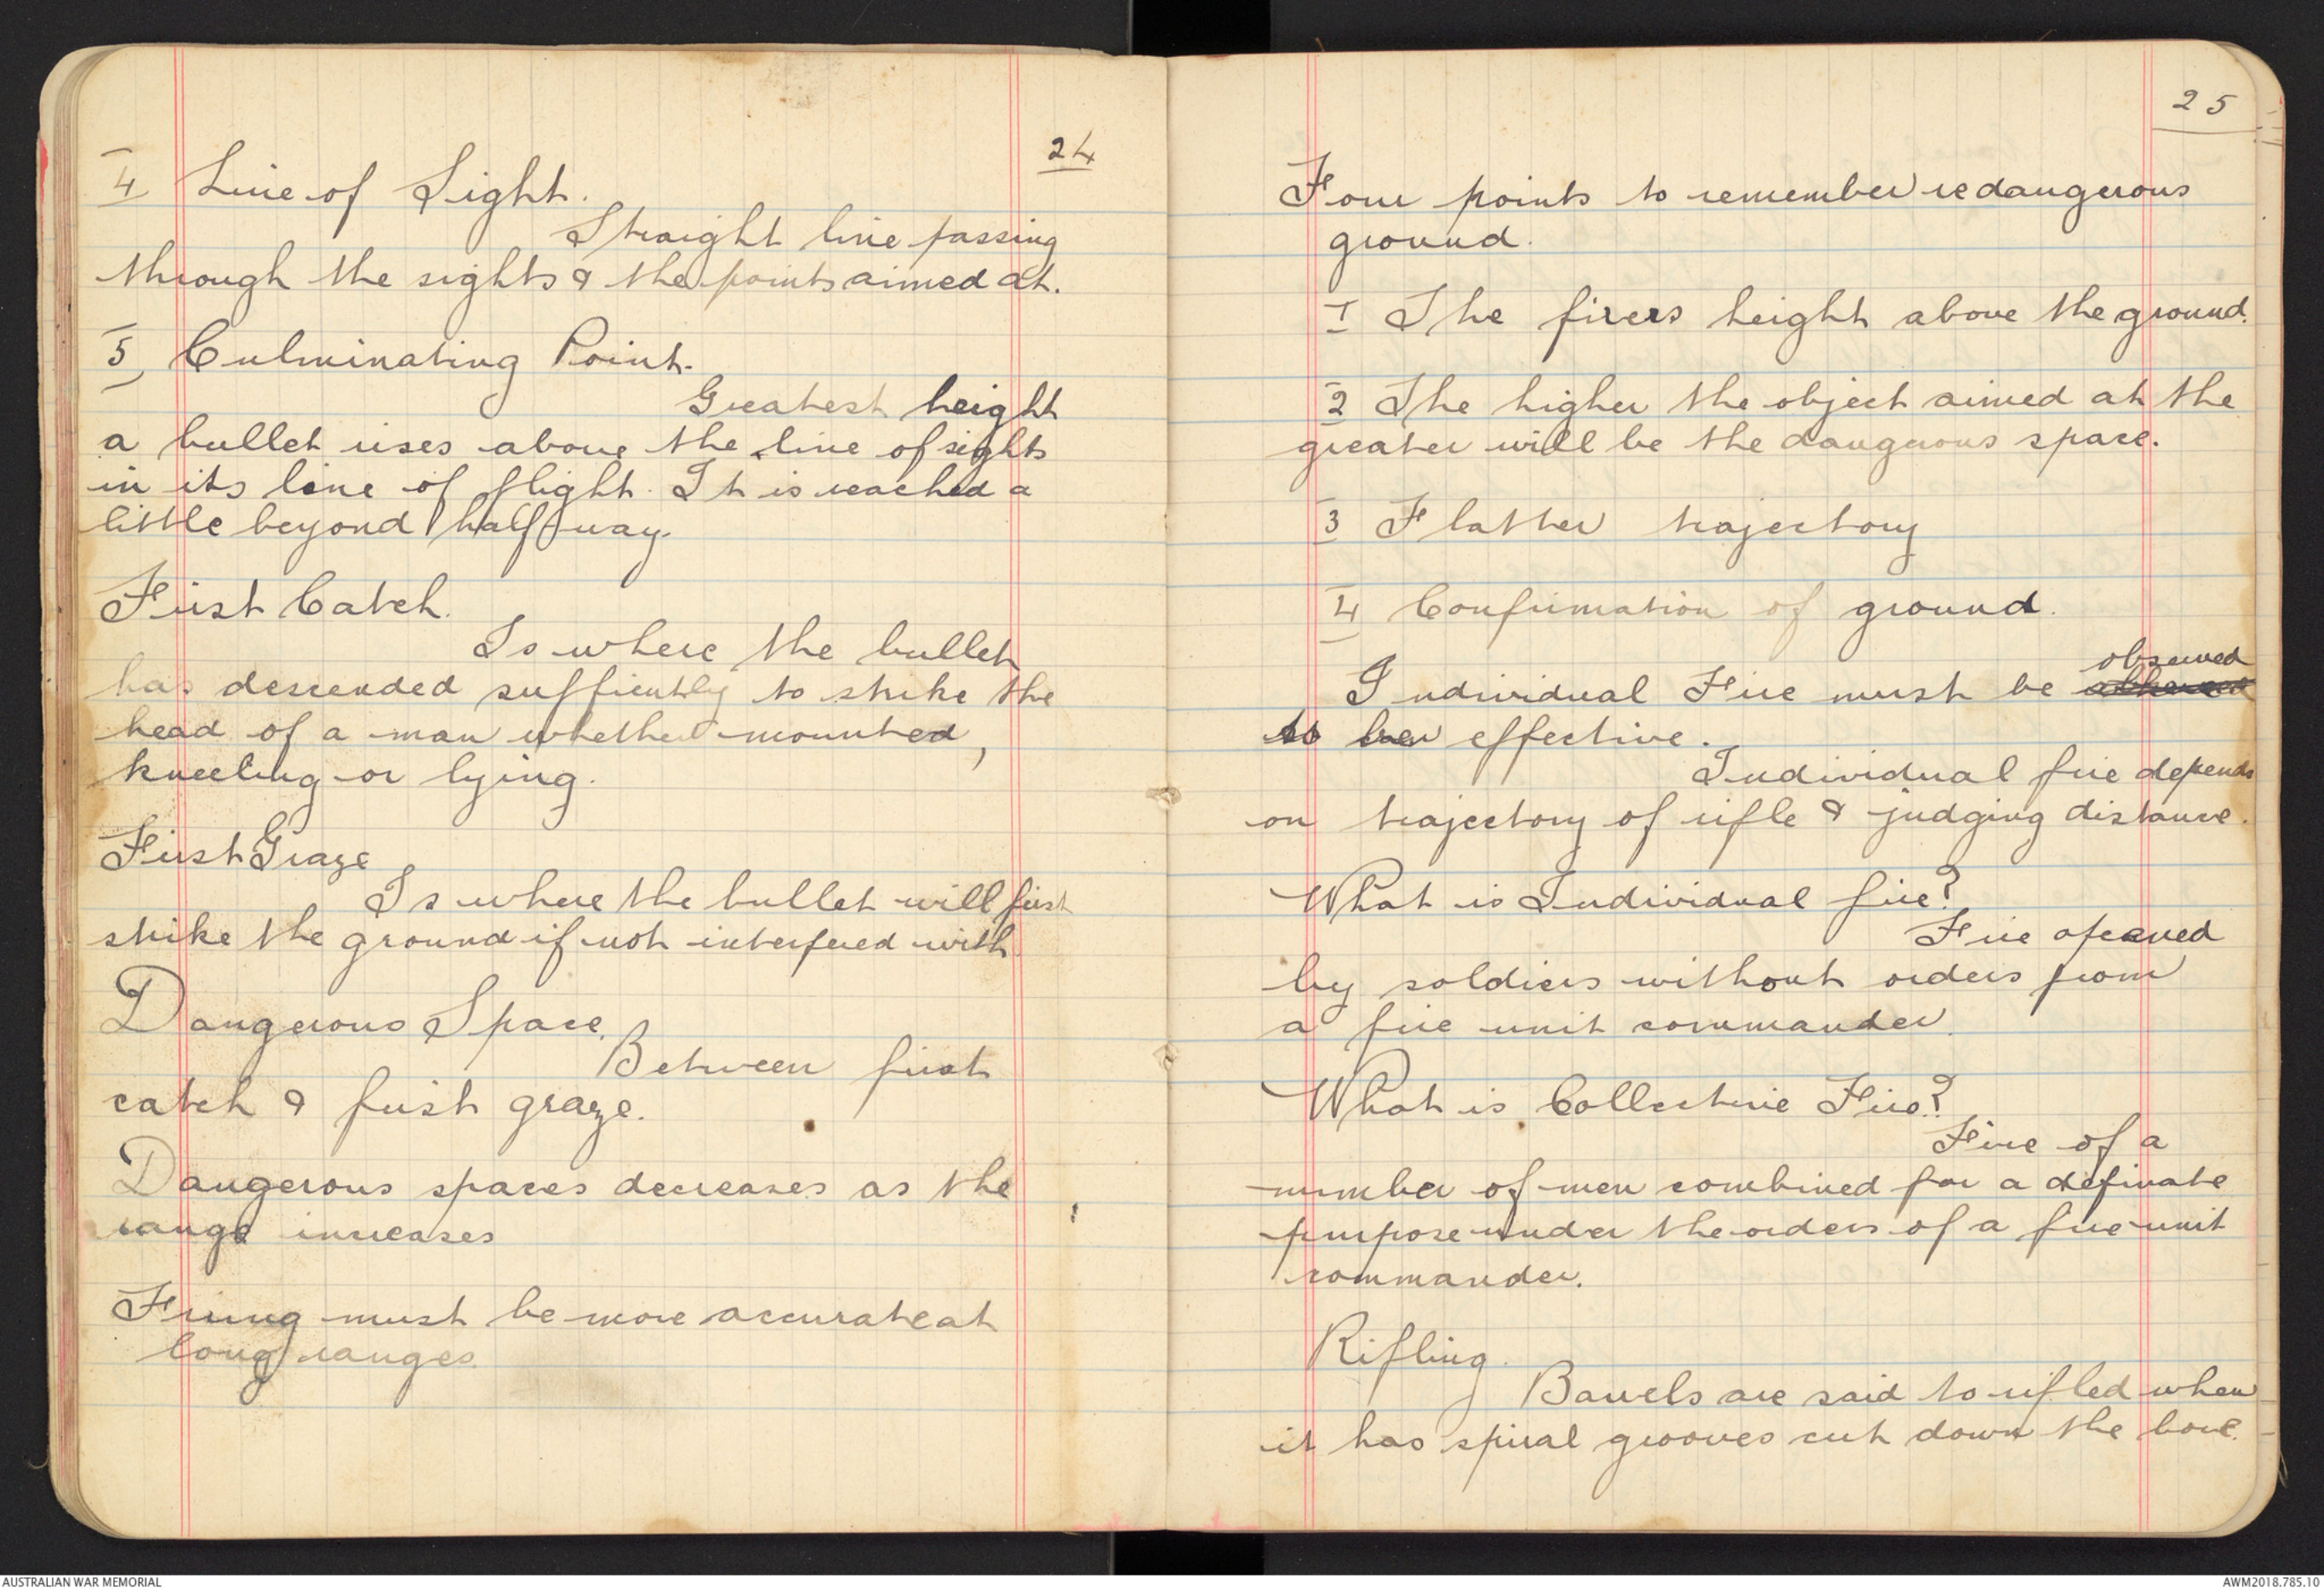 24
4 Line of Sight.
Straight line passing
through the sights & the points aimed at.
5 Culminating Point.
Greatest height
a bullet rises above the line of sights
in its line of flight. It is reached a
little beyond half way.
First Catch.
Is where the bullet
has descended suffiently to strike the
head of a man whether mounted,
kneeling or lying.
First Graze
Is where the bullet will first
strike the ground if not interfered with.
Dangerous Space.
Between first
catch & first graze.
Dangerous spaces decreases as the
range increases
Firing must be more accurate at
long ranges.
25
Four points to remember re dangerous
ground.
1 The firers height above the ground.
2 The higher the object aimed at the
greater will be the dangerous space.
3 Flatter trajectory
4 Confirmation of ground.
observed
Individual Fire must be
to be effective.
Individual fire depends
on trajectory of rifle & judging distance.
What is Individual fire?
Fire opened
by soldiers without orders from
a fire unit commander.
What is Collective Fire?
Fire of a
number of men combined for a definate
purpose under the orders of a fire unit
commander.
Rifling.
Barrels are said to rifled when
it has spiral grooves cut down the bore.
AUSTRALIAN WAR MEMORIAL
AWM2018.785.10